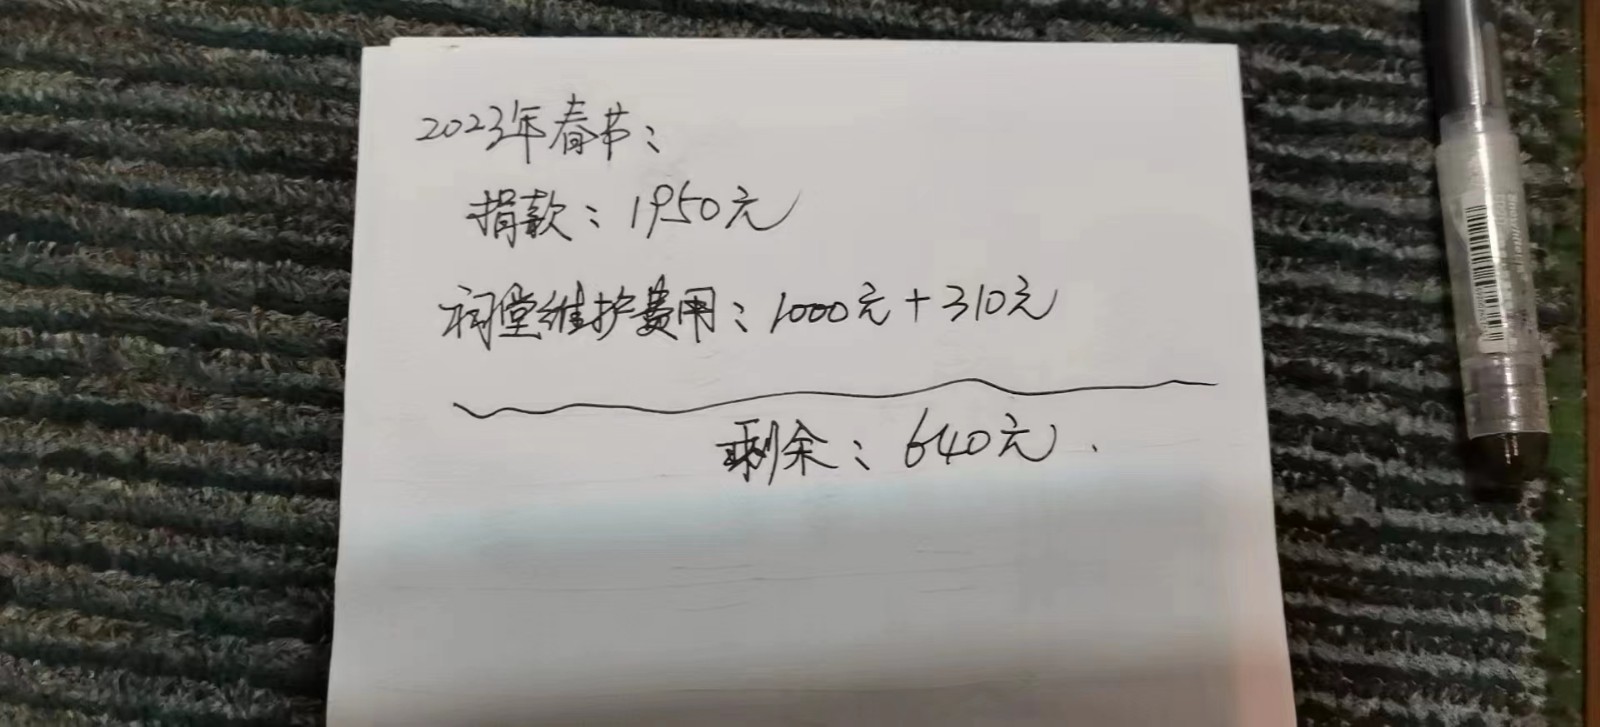 2023年春节：
捐款：1950元
祠堂维护费用：1000元+310元
剩余：640元.